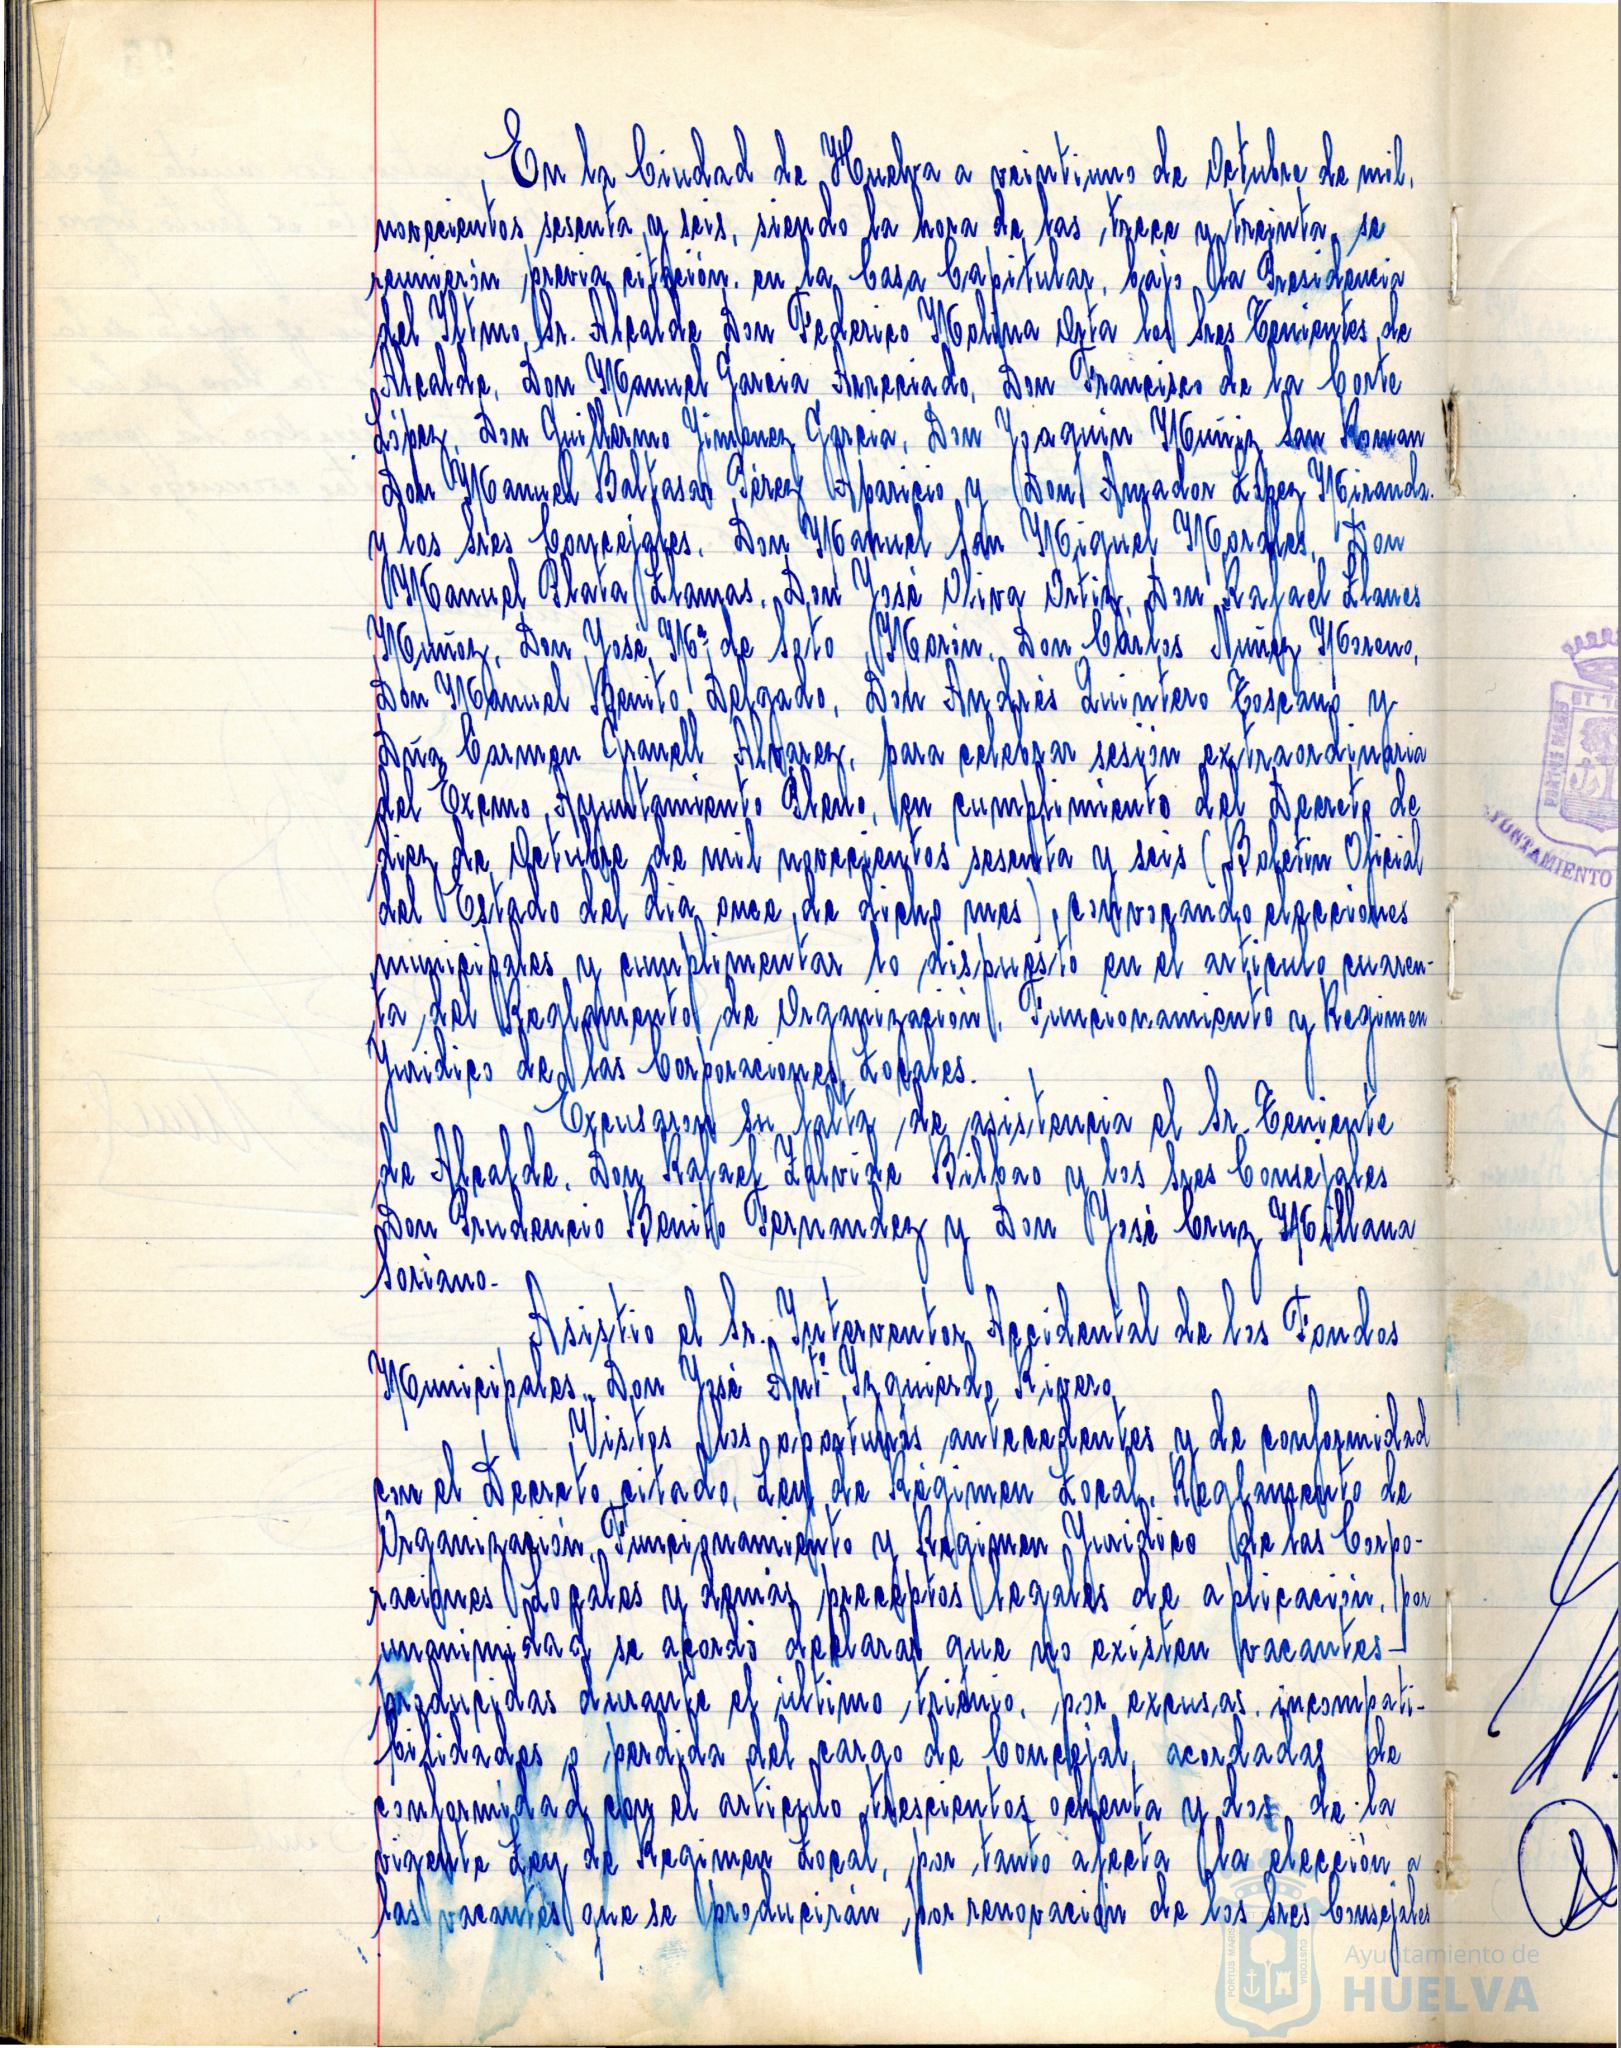 En la Ciudad de Huelva a veintiuno de Octubre de mil,
novecientos sesenta y seis, siendo la hora de las trece y treinta, se
reunierón previa citación, en la Casa Capitular, bajo la Presidencia
del Iltmo. Sr. Alcalde Don Federico Molina Orta los Sres Tenientes de
Alcalde, Don Manuel Garcia Arreciado, Don Francisco de la Corte
López, Don Guillermo Jimenez Garcia, Don Joaquin Muñiz San Roman
Don Manuel Baltasar Pérez Aparicio y Don Amador López Miranda.
y los Sres Concejales, Don Manuel San Miguel Morales, Don
Manuel Plata Llamas, Don José Oliva Ortiz, Don Rafael Llanes
Muñoz, Don José Mª de Soto Morón, Don Cárlos Nuñez Moreno,
Don Manuel Benito Delgado, Don Andrés Quintero Toscano y
Dña Carmen Granell Alvarez, para celebrar sesión extraordinaria
del Excmo. Ayuntamiento Pleno, en cumplimiento del Decreto de
diez de Octubre de mil novecientos sesenta y seis (Boletín Oficial
del Estado del dia once de dicho mes), convocando elecciones
municipales y cumplimentar lo dispuesto en el articulo cuaren-
ta del Reglamento de Organización, Funcionamiento y Regimen
Juridico de las Corporaciones Locales.
Excusaron su falta de asistencia el Sr. Teniente
de Alcalde, Don Rafael Zalvide Bilbao y los Sres Consejales
Don Prudencio Benito Fernandez y Don José Cruz Millana
Soriano-
Asistio el Sr. Interventor Accidental de los Fondos
Municipales, Don José Antº Izquierdo Rivero
Vistos los oportunos antecedentes y de conformidad
con el Decreto citado, Ley de Régimen Local, Reglamento de
Organización, Funcionamiento y Regimen Juridico de las Corpo-
raciones Locales y demás preceptos legales de aplicación, por
unanimidad se acordó declarar que no existen vacantes-
producidas durante el último trienio, por excusas, incompati-
bilidades o perdida del cargo de Concejal, acordadas de
conformidad con el articulo trescientos ochenta y dos de la
vigente Ley de Regimen Local, por tanto afecta la elección a
las vacantes que se producirán por renovación de los Sres Consejales
PORTUS MARIS
AYUNTAMIENTO
PORTUS MARIS
CUSTODIA
Ayuntamiento de
HUELVA